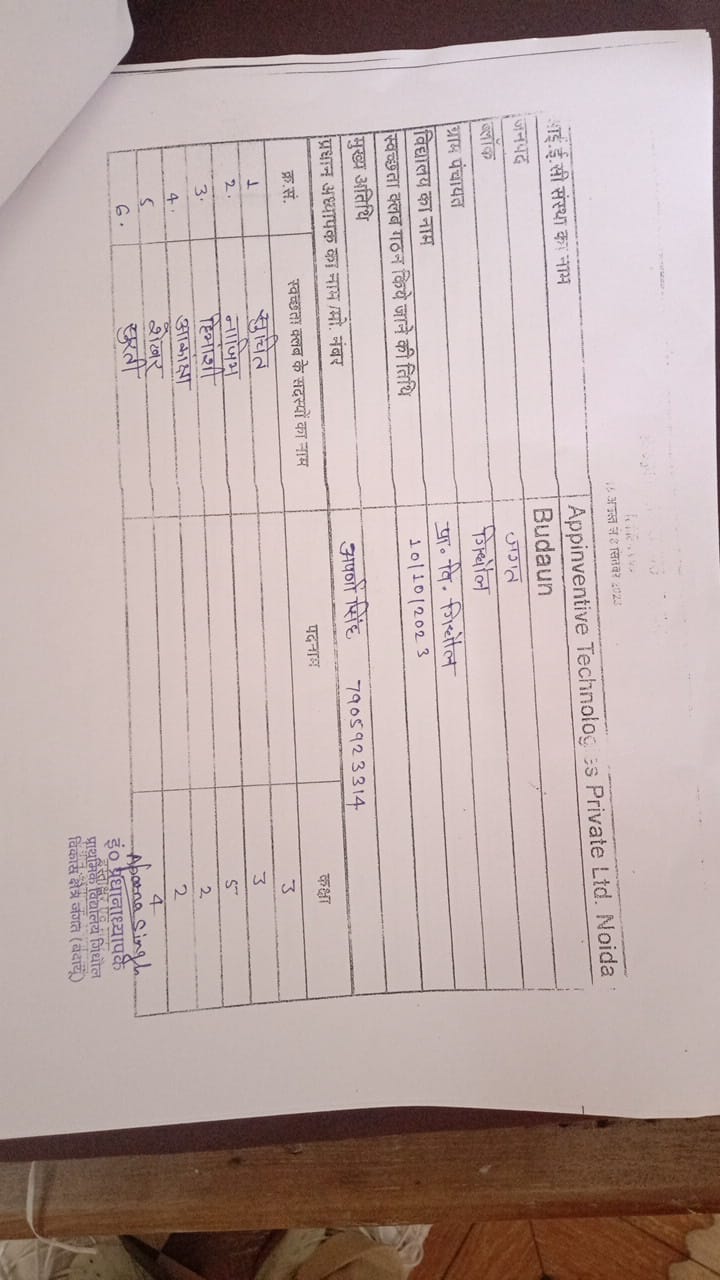 आई ई सी संस्था का नाम Appinventive Technologies Private Ltd. Noida
जनपद Budaun
ब्लॉक जगत
ग्राम पंचायत गिधौल
विद्यालय का नाम प्रा. वि. गिधौल
स्वच्छता क्लब गठन किये जाने की तिथि 10/10/2023
मुख्य अतिथि
प्रधान अध्यापक का नाम /मो. नंबर अपर्णा सिंह 7905923314
क्र.सं. स्वच्छता क्लब के सदस्यों का नाम पदनाम कक्षा
1 सुचित 3
2. नाजिम 3
3. हिमांशी 5
4. आकांक्षा 2
5 शेखर 2
6. सुरती 4
Aparna Singh
इं० प्रधानाध्यापक
प्राथमिक विद्यालय गिधौल
विकास क्षेत्र जगत (बदायूं)